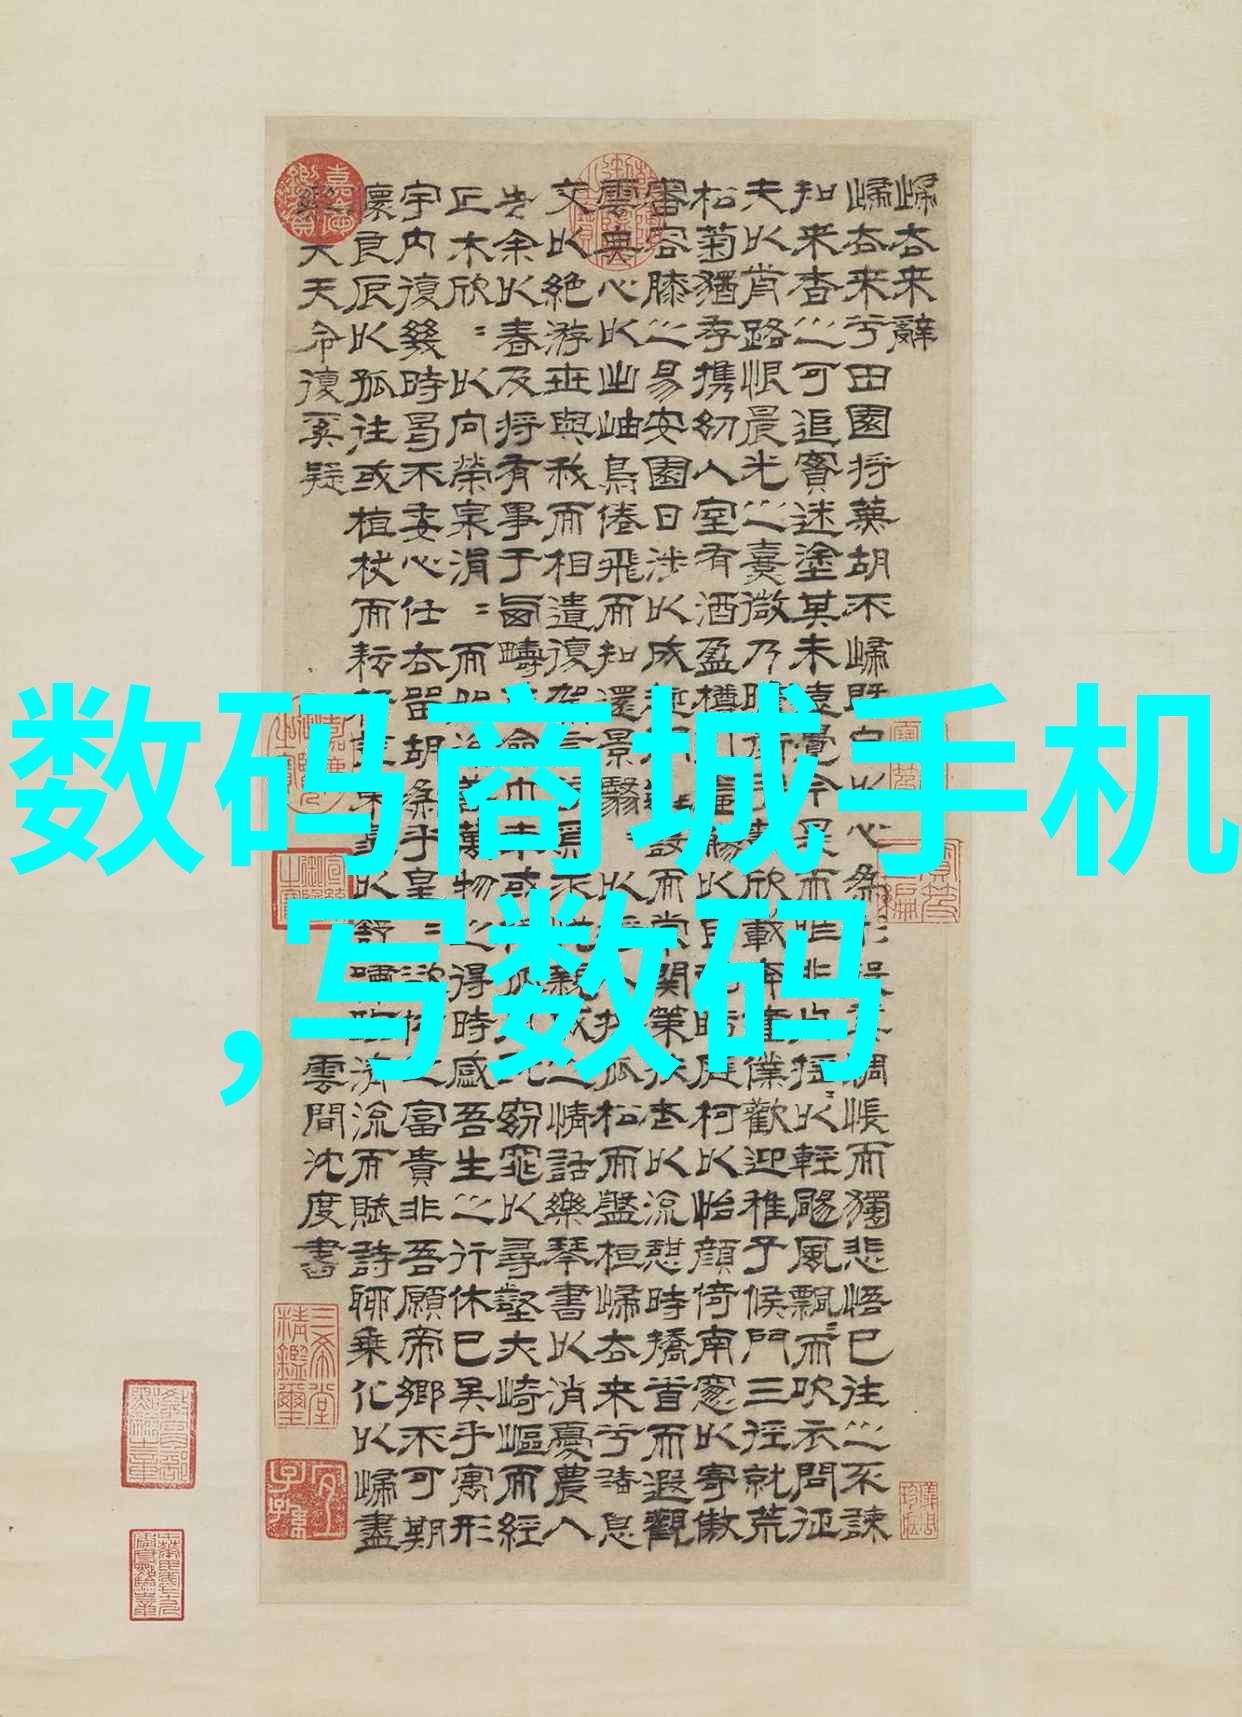 歸去來辭
歸去來兮田園將蕪胡不歸既自以心爲形役奚惆悵而獨悲悟已往之不諫
知來者之可追實迷塗其未遠覺今是而昨非舟搖以輕颺風飄而吹衣問征
夫以前路恨晨光之熹微乃瞻衡宇載欣載奔僮僕歡迎稚子候門三徑就荒
松菊猶存攜幼入室有酒盈樽引壺觴以自酌眄庭柯以怡顏倚南窗以寄傲
審容膝之易安園日涉以成趣門雖設而常關策扶老以流憩時矯首而遐觀
雲無心以出岫鳥倦飛而知還景翳以將入撫孤松而盤桓歸去來兮請息
交以絕游世與我而相遺復駕言兮焉求悅親戚之情話樂琴書以消憂農人
告余以春及將有事于西疇或命巾車或棹孤舟既窈窕以尋壑亦崎嶇而經
丘木欣〻以向榮泉涓〻而始流羨萬物之得時感吾生之行休已矣乎寓形
宇內復幾時曷不委心任去留胡爲乎皇〻欲何之富貴非吾願帝鄉不可期
懷良辰以孤往或植杖而耘耔登東皋以舒嘯臨清流而賦詩聊乘化以歸盡
樂夫天命復奚疑
雲間沈度書
三希堂精鑑璽
宜子孫
数码商城手机
,写数码